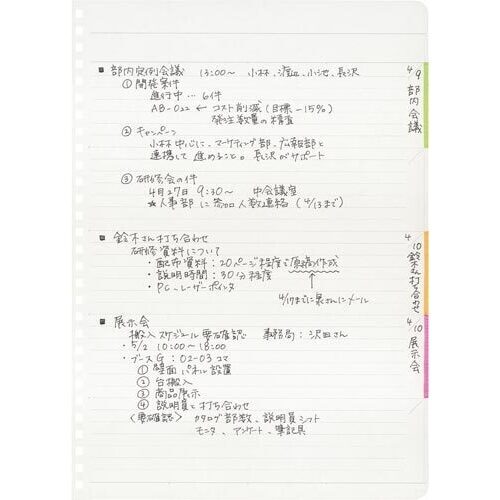 ■ 部内定例会議 13:00～ 小林、渡辺、小池、長沢
① 開発案件
進行中… 6件
AB-022 ← コスト削減(目標-15%)
発注数量の精査
② キャンペーン
小林中心に、マーケティング部、広報部と
連携して進めること。長沢がサポート
③ 研修会の件
4月27日 9:30～ 中会議室
★人事部に参加人数連絡(4/13まで)
■ 鈴木さん打ち合わせ
研修資料について
・配布資料:20ページ程度で原稿作成
・説明時間:30分程度
・PC、レーザーポインタ
4/17までに泉さんにメール
■ 展示会
搬入スケジュール要確認 事務局:沢田さん
・5/2 10:00～18:00
・ブースG:02-03コマ
① 壁面パネル設置
② 台搬入
③ 商品展示
④ 説明員と打ち合わせ
〈要確認〉 カタログ部数、説明員シフト
モニタ、アンケート、筆記具
4/9 部内会議
4/10 鈴木さん打ち合わせ
4/10 展示会